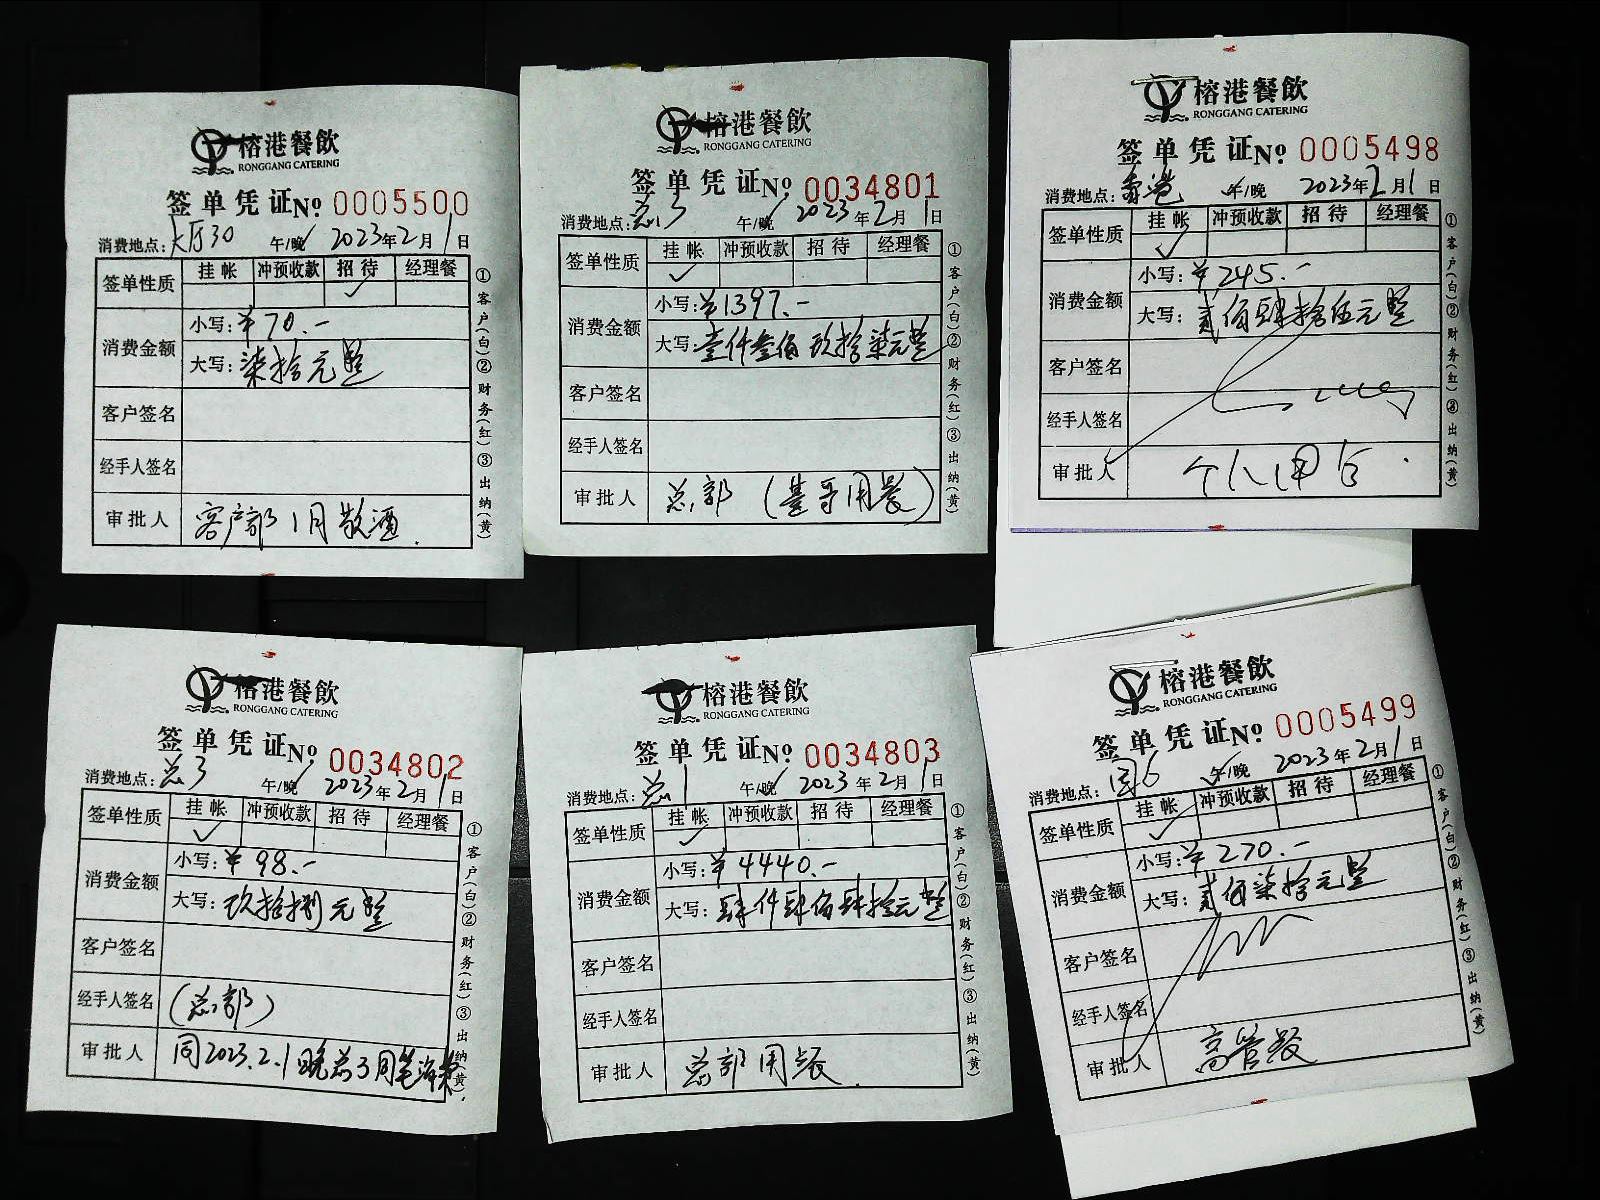 榕港餐飲
RONGGANG CATERING
签单凭证No 0005500
消费地点：大厅30 午/晚 2023年2月1日
签单性质 挂帐 冲预收款 招待 经理餐
消费金额
小写：¥70.-
大写：柒拾元整
客户签名
经手人签名
审批人 客户部1月散酒.
①客户(白)②财务(红)③出纳(黄)
榕港餐飲
RONGGANG CATERING
签单凭证No 0034801
消费地点：总3 午/晚 2023年2月1日
签单性质 挂帐 冲预收款 招待 经理餐
消费金额
小写：¥1397.-
大写：壹仟叁佰玖拾柒元整
客户签名
经手人签名
审批人 总部(基哥用餐)
①客户(白)②财务(红)③出纳(黄)
榕港餐飲
RONGGANG CATERING
签单凭证No 0005498
消费地点：香港 午/晚 2023年2月1日
签单性质 挂帐 冲预收款 招待 经理餐
消费金额
小写：¥245.-
大写：贰佰肆拾伍元整
客户签名
经手人签名
审批人 个人
①客户(白)②财务(红)③出纳(黄)
榕港餐飲
RONGGANG CATERING
签单凭证No 0034802
消费地点：总3 午/晚 2023年2月1日
签单性质 挂帐 冲预收款 招待 经理餐
消费金额
小写：¥98.-
大写：玖拾捌元整
客户签名
经手人签名 (总部)
审批人 同2023.2.1晚总3同笔
①客户(白)②财务(红)③出纳(黄)
榕港餐飲
RONGGANG CATERING
签单凭证No 0034803
消费地点：总1 午/晚 2023年2月1日
签单性质 挂帐 冲预收款 招待 经理餐
消费金额
小写：¥4440.-
大写：肆仟肆佰肆拾元整
客户签名
经手人签名
审批人 总部用餐.
①客户(白)②财务(红)③出纳(黄)
榕港餐飲
RONGGANG CATERING
签单凭证No 0005499
消费地点： 午/晚 2023年2月1日
签单性质 挂帐 冲预收款 招待 经理餐
消费金额
小写：¥270.-
大写：贰佰柒拾元整
客户签名
经手人签名
审批人 高管
①客户(白)②财务(红)③出纳(黄)